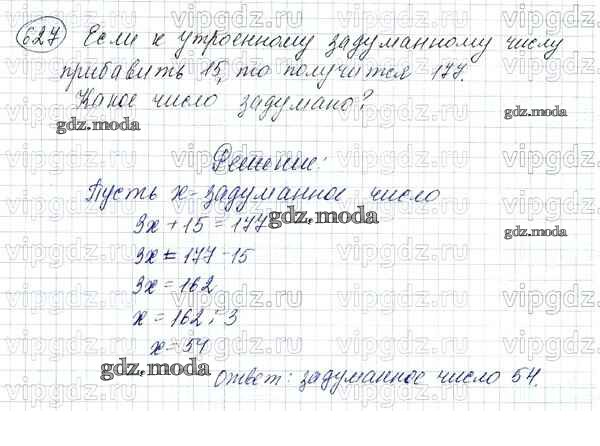 627 Если к утроенному задуманному числу
прибавить 15, то получится 177.
Какое число задумано?
Решение:
Пусть x - задуманное число
3x + 15 = 177
3x = 177 - 15
3x = 162
x = 162 : 3
x = 54
Ответ: задуманное число 54.
vipgdz.ru
gdz.moda
gdz.moda
gdz.moda
gdz.moda
gdz.moda